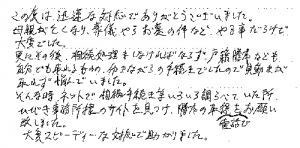 この度は、迅速な対応でありがとうございました。
母親が亡くなり、葬儀やらお墓の件など、やる事だらけで
大変でした。
更にその後、相続処理をしなければならず、戸籍謄本なども
自分でも取れるものの、働きながらの手続きでしたので貴重な
ず悩んでいました。
そんな時、ネットで相続手続きをいろいろ調べていた所、
ひびき事務所様のサイトを見つけ、勝手の電話でお願い
致しました。
大変スピーディーな対応で助かりました。